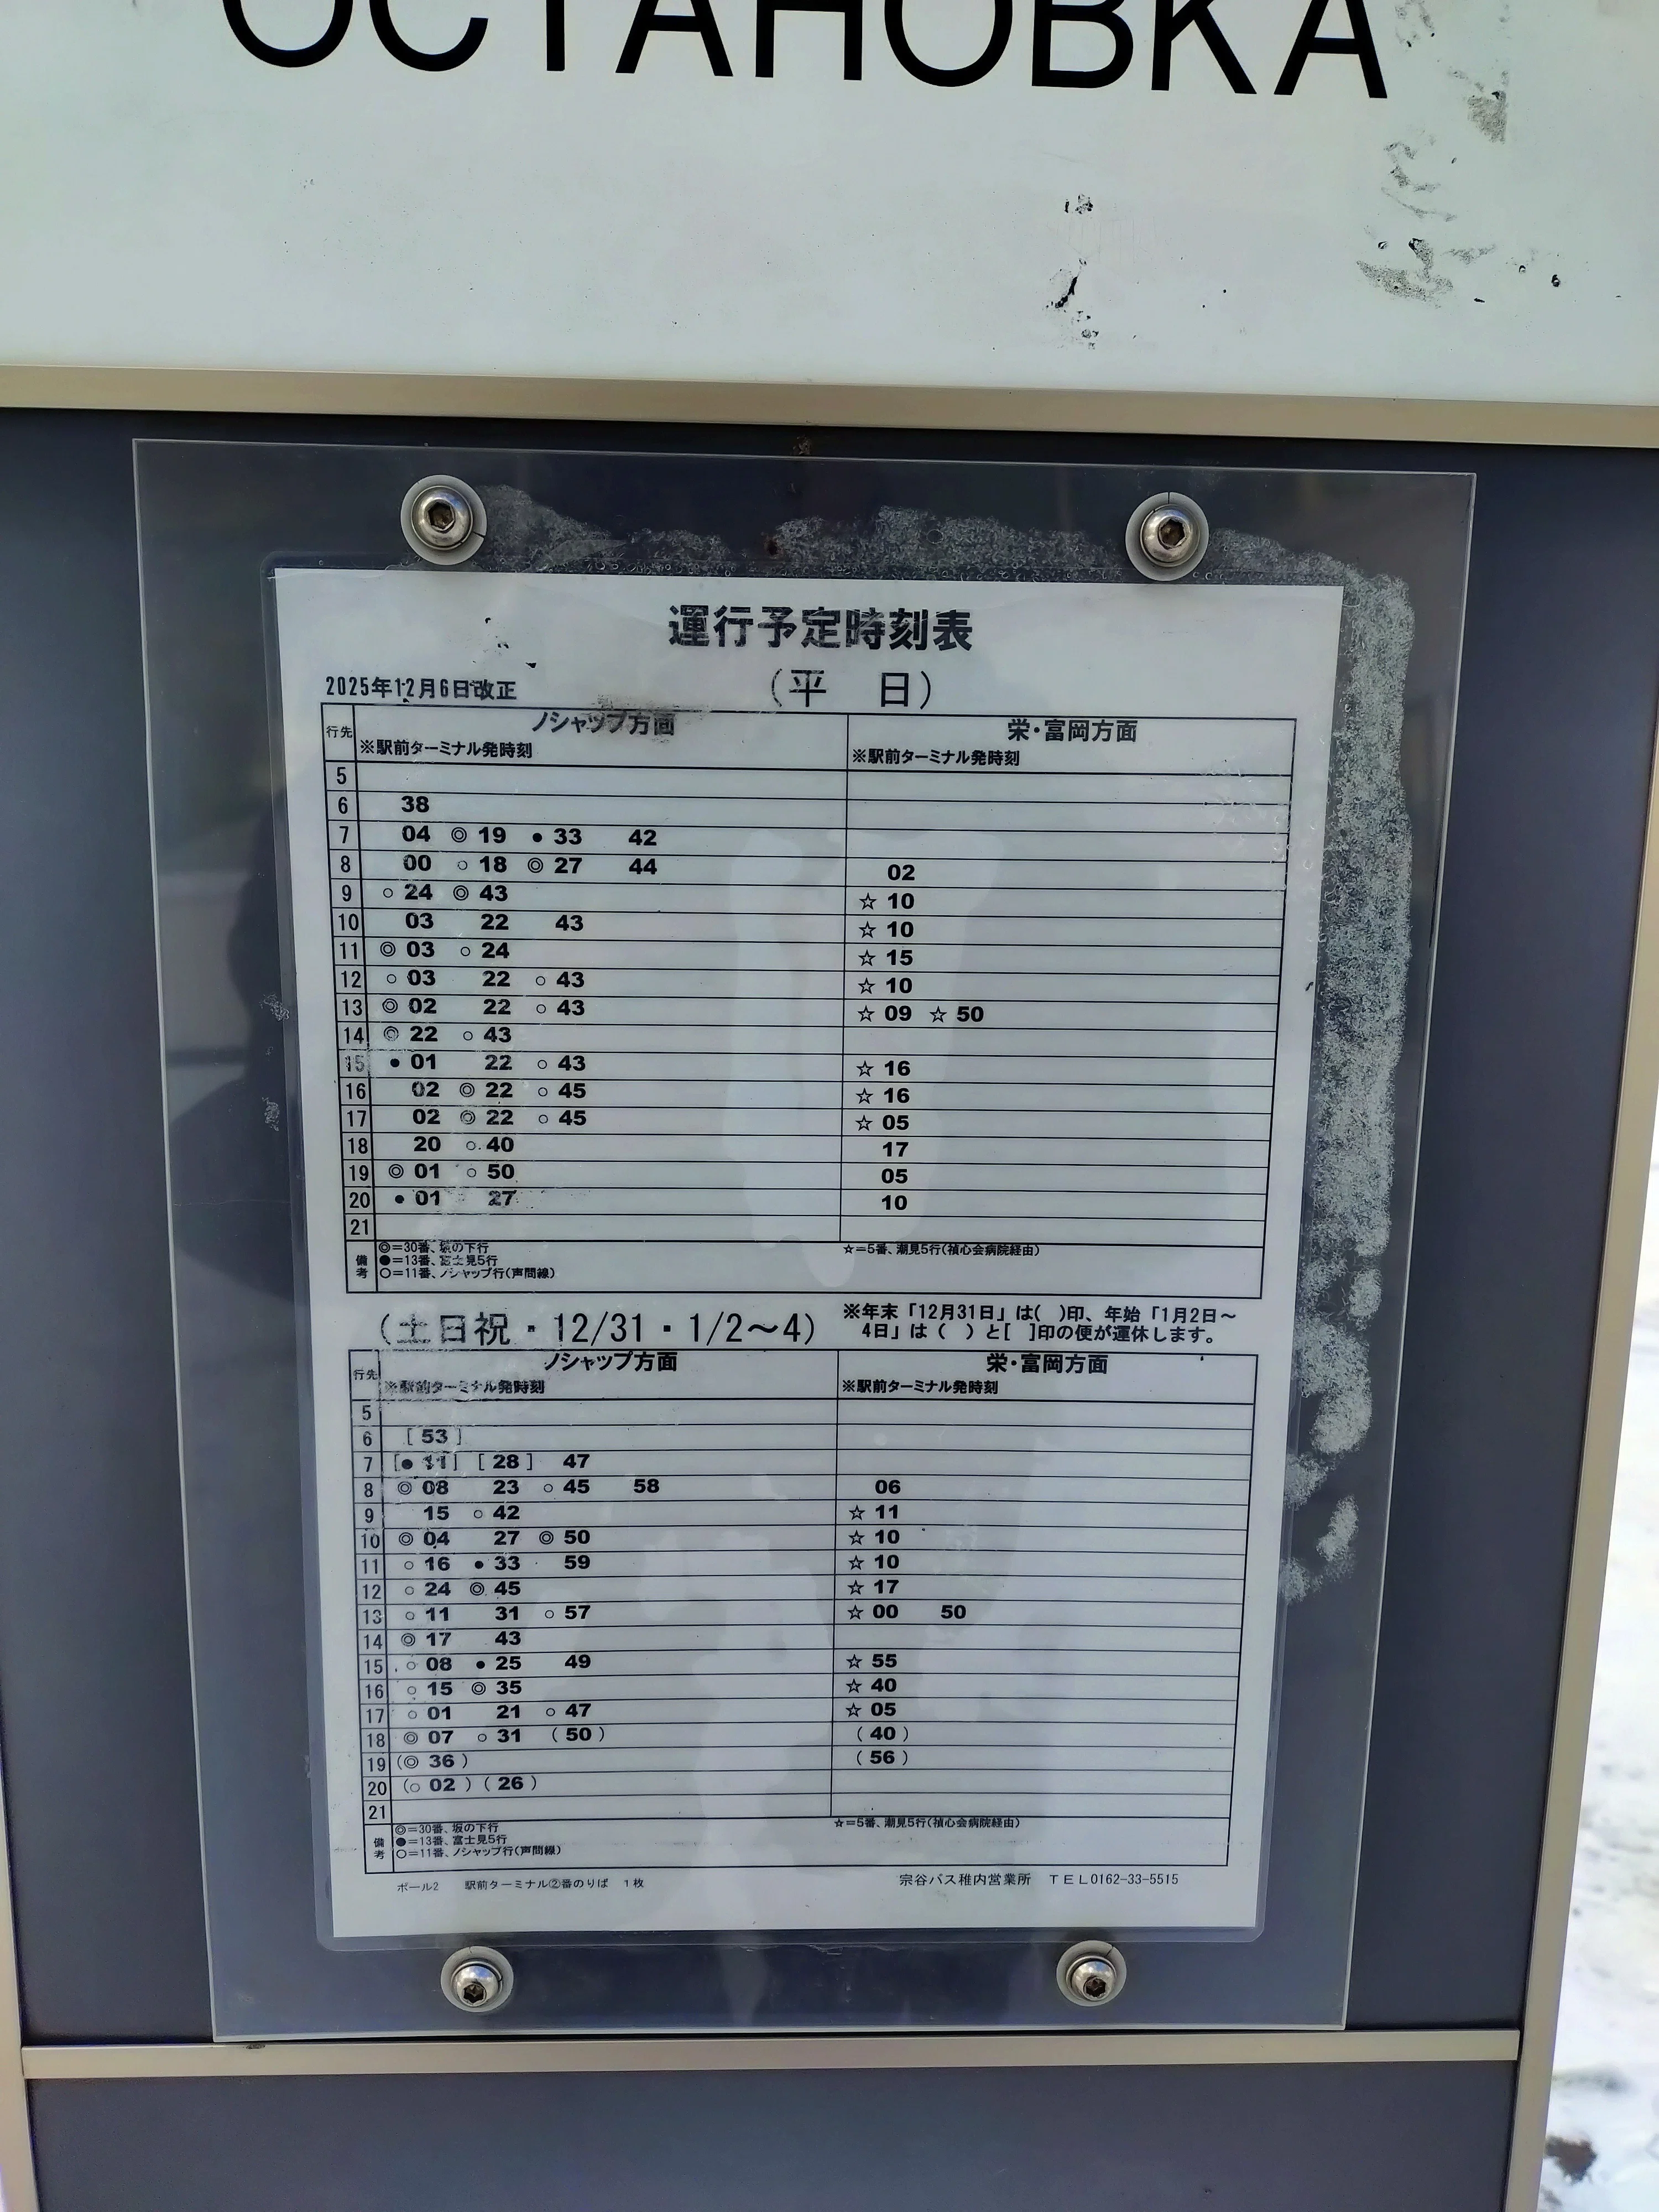 ОСТАНОВКА
運行予定時刻表
2025年12月6日改正 (平 日)
行先 ノシャップ方面 栄・富岡方面
※駅前ターミナル発時刻 ※駅前ターミナル発時刻
5
6 38
7 04 ◎ 19 ● 33 42
8 00 ○ 18 ◎ 27 44 02
9 ○ 24 ◎ 43 ☆ 10
10 03 22 43 ☆ 10
11 ◎ 03 ○ 24 ☆ 15
12 ○ 03 22 ○ 43 ☆ 10
13 ◎ 02 22 ○ 43 ☆ 09 ☆ 50
14 ◎ 22 ○ 43
15 ● 01 22 ○ 43 ☆ 16
16 02 ◎ 22 ○ 45 ☆ 16
17 02 ◎ 22 ○ 45 ☆ 05
18 20 ○ 40 17
19 ◎ 01 ○ 50 05
20 ● 01 27 10
21
備考 ◎=30番、坂の下行 ☆=5番、潮見5行(禎心会病院経由)
●=13番、富士見5行
○=11番、ノシャップ行(声問線)
(土日祝・12/31・1/2～4) ※年末「12月31日」は( )印、年始「1月2日～
4日」は( )と[ ]印の便が運休します。
行先 ノシャップ方面 栄・富岡方面
※駅前ターミナル発時刻 ※駅前ターミナル発時刻
5
6 [ 53 ]
7 [● 11] [ 28 ] 47
8 ◎ 08 23 ○ 45 58 06
9 15 ○ 42 ☆ 11
10 ◎ 04 27 ◎ 50 ☆ 10
11 ○ 16 ● 33 59 ☆ 10
12 ○ 24 ◎ 45 ☆ 17
13 ○ 11 31 ○ 57 ☆ 00 50
14 ◎ 17 43
15 ○ 08 ● 25 49 ☆ 55
16 ○ 15 ◎ 35 ☆ 40
17 ○ 01 21 ○ 47 ☆ 05
18 ◎ 07 ○ 31 ( 50 ) ( 40 )
19 (◎ 36 ) ( 56 )
20 (○ 02 ) ( 26 )
21
備考 ◎=30番、坂の下行 ☆=5番、潮見5行(禎心会病院経由)
●=13番、富士見5行
○=11番、ノシャップ行(声問線)
ポール2 駅前ターミナル②番のりば 1枚 宗谷バス稚内営業所 TEL0162-33-5515